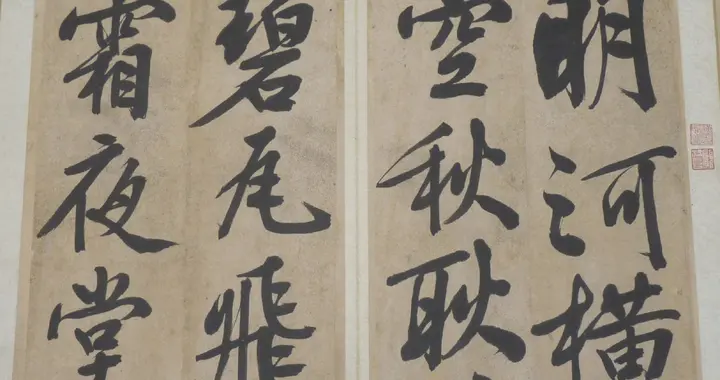 明河橫
空秋耿
碧瓦飛
霜夜堂